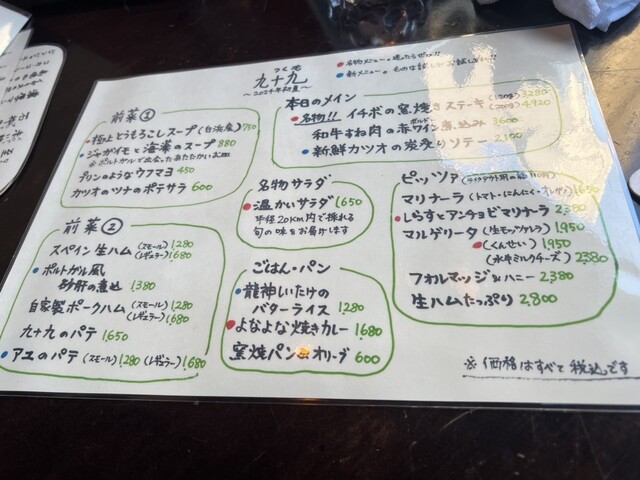 つくも
九十九
〜2024年初夏〜
● 名物メニュー
● 新メニュー
前菜①
● 極上とうもろこしスープ (白浜産) 750
● ジャガイモと海藻のスープ 880
※ポルトガルで出会ったあたたかいお皿
プリンのようなウフマヨ 450
カツオのツナのポテサラ 600
前菜②
スペイン生ハム (スモール) 1,280
(レギュラー) 1,680
● ポルトガル風
砂肝の煮込 1,380
自家製ポークハム (スモール) 1,280
(レギュラー) 1,680
九十九のパテ 1,650
● アユのパテ (スモール) 1,280 (レギュラー) 1,680
本日のメイン
● 名物!! イチボの窯焼きステーキ (150g) 3,280
(200g) 4,920
和牛すね肉の赤ワイン煮込み 3,600
● 新鮮カツオの炭炙りソテー 2,100
名物サラダ
● 温かいサラダ 1,650
半径20km内で採れる
旬の味をお届けします
ごはん・パン
● 龍神しいたけの
バターライス 1,280
● よなよな焼きカレー 1,680
窯焼パン&オリーブ 600
ピッツァ
マリナーラ (トマト・にんにく・オレガノ) 1,650
● しらすとアンチョビマリナーラ 2,380
マルゲリータ (生モッツァレラ) 1,950
● (くんせい) 1,950
(水牛ミルクチーズ) 2,380
フォルマッジ&ハニー 2,380
生ハムたっぷり 2,800
※価格はすべて税込です